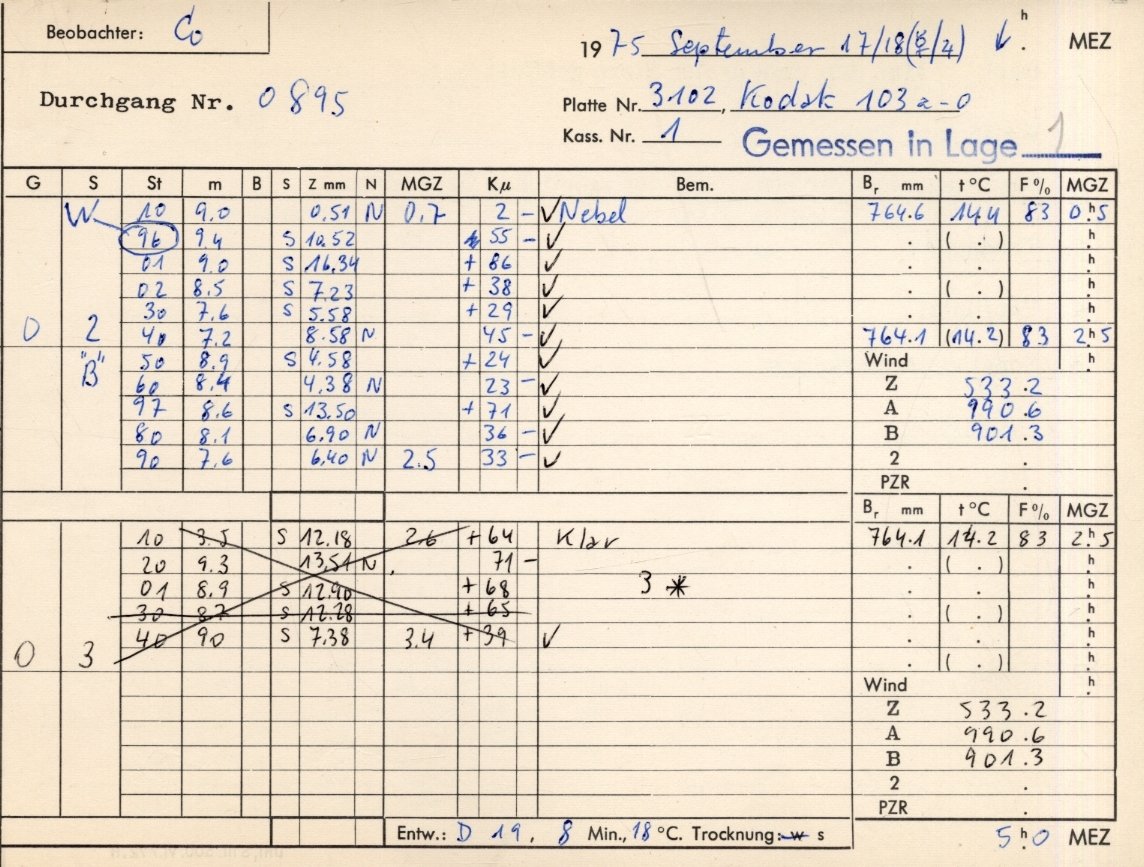 Beobachter: Co
1975 September 17/18 h MEZ
Durchgang Nr. 0895
Platte Nr. 3102, Kodak 103 a-0
Kass. Nr. 1 Gemessen in Lage 1
G S St m B S Z mm N MGZ Kμ Bem. Br mm t °C F % MGZ
W 10 9.0 0.51 N 0.7 2 - ✓ Nebel 764.6 14.4 83 0h5
96 9.4 S 10.52 55 - ✓ . ( . ) h
01 9.0 S 16.34 + 86 ✓ . . h
02 8.5 S 7.23 + 38 ✓ . ( . ) h
30 7.6 S 5.58 + 29 ✓ . . h
0 2 40 7.2 8.58 N 45 - ✓ 764.1 (14.2) 83 2h5
"B" 50 8.9 S 4.58 + 24 ✓ Wind h
60 8.4 4.38 N 23 - ✓ Z 533.2
97 8.6 S 13.50 + 71 ✓ A 990.6
80 8.1 6.90 N 36 - ✓ B 901.3
90 7.6 6.40 N 2.5 33 - ✓ 2 .
PZR .
Br mm t °C F % MGZ
10 3.5 S 12.18 2.6 + 64 Klar 764.1 14.2 83 2h5
20 9.3 13.51 N 71 - . ( . ) h
01 8.9 S 12.90 + 68 3 * . . h
30 8.7 S 12.28 + 65 . ( . ) h
40 9.0 S 7.38 3.4 + 39 ✓ . . h
0 3 . ( . ) h
Wind h
Z 533.2
A 990.6
B 901.3
2 .
PZR .
Entw.: D 19, 8 Min., 18 °C. Trocknung: w s
5 h 0 MEZ